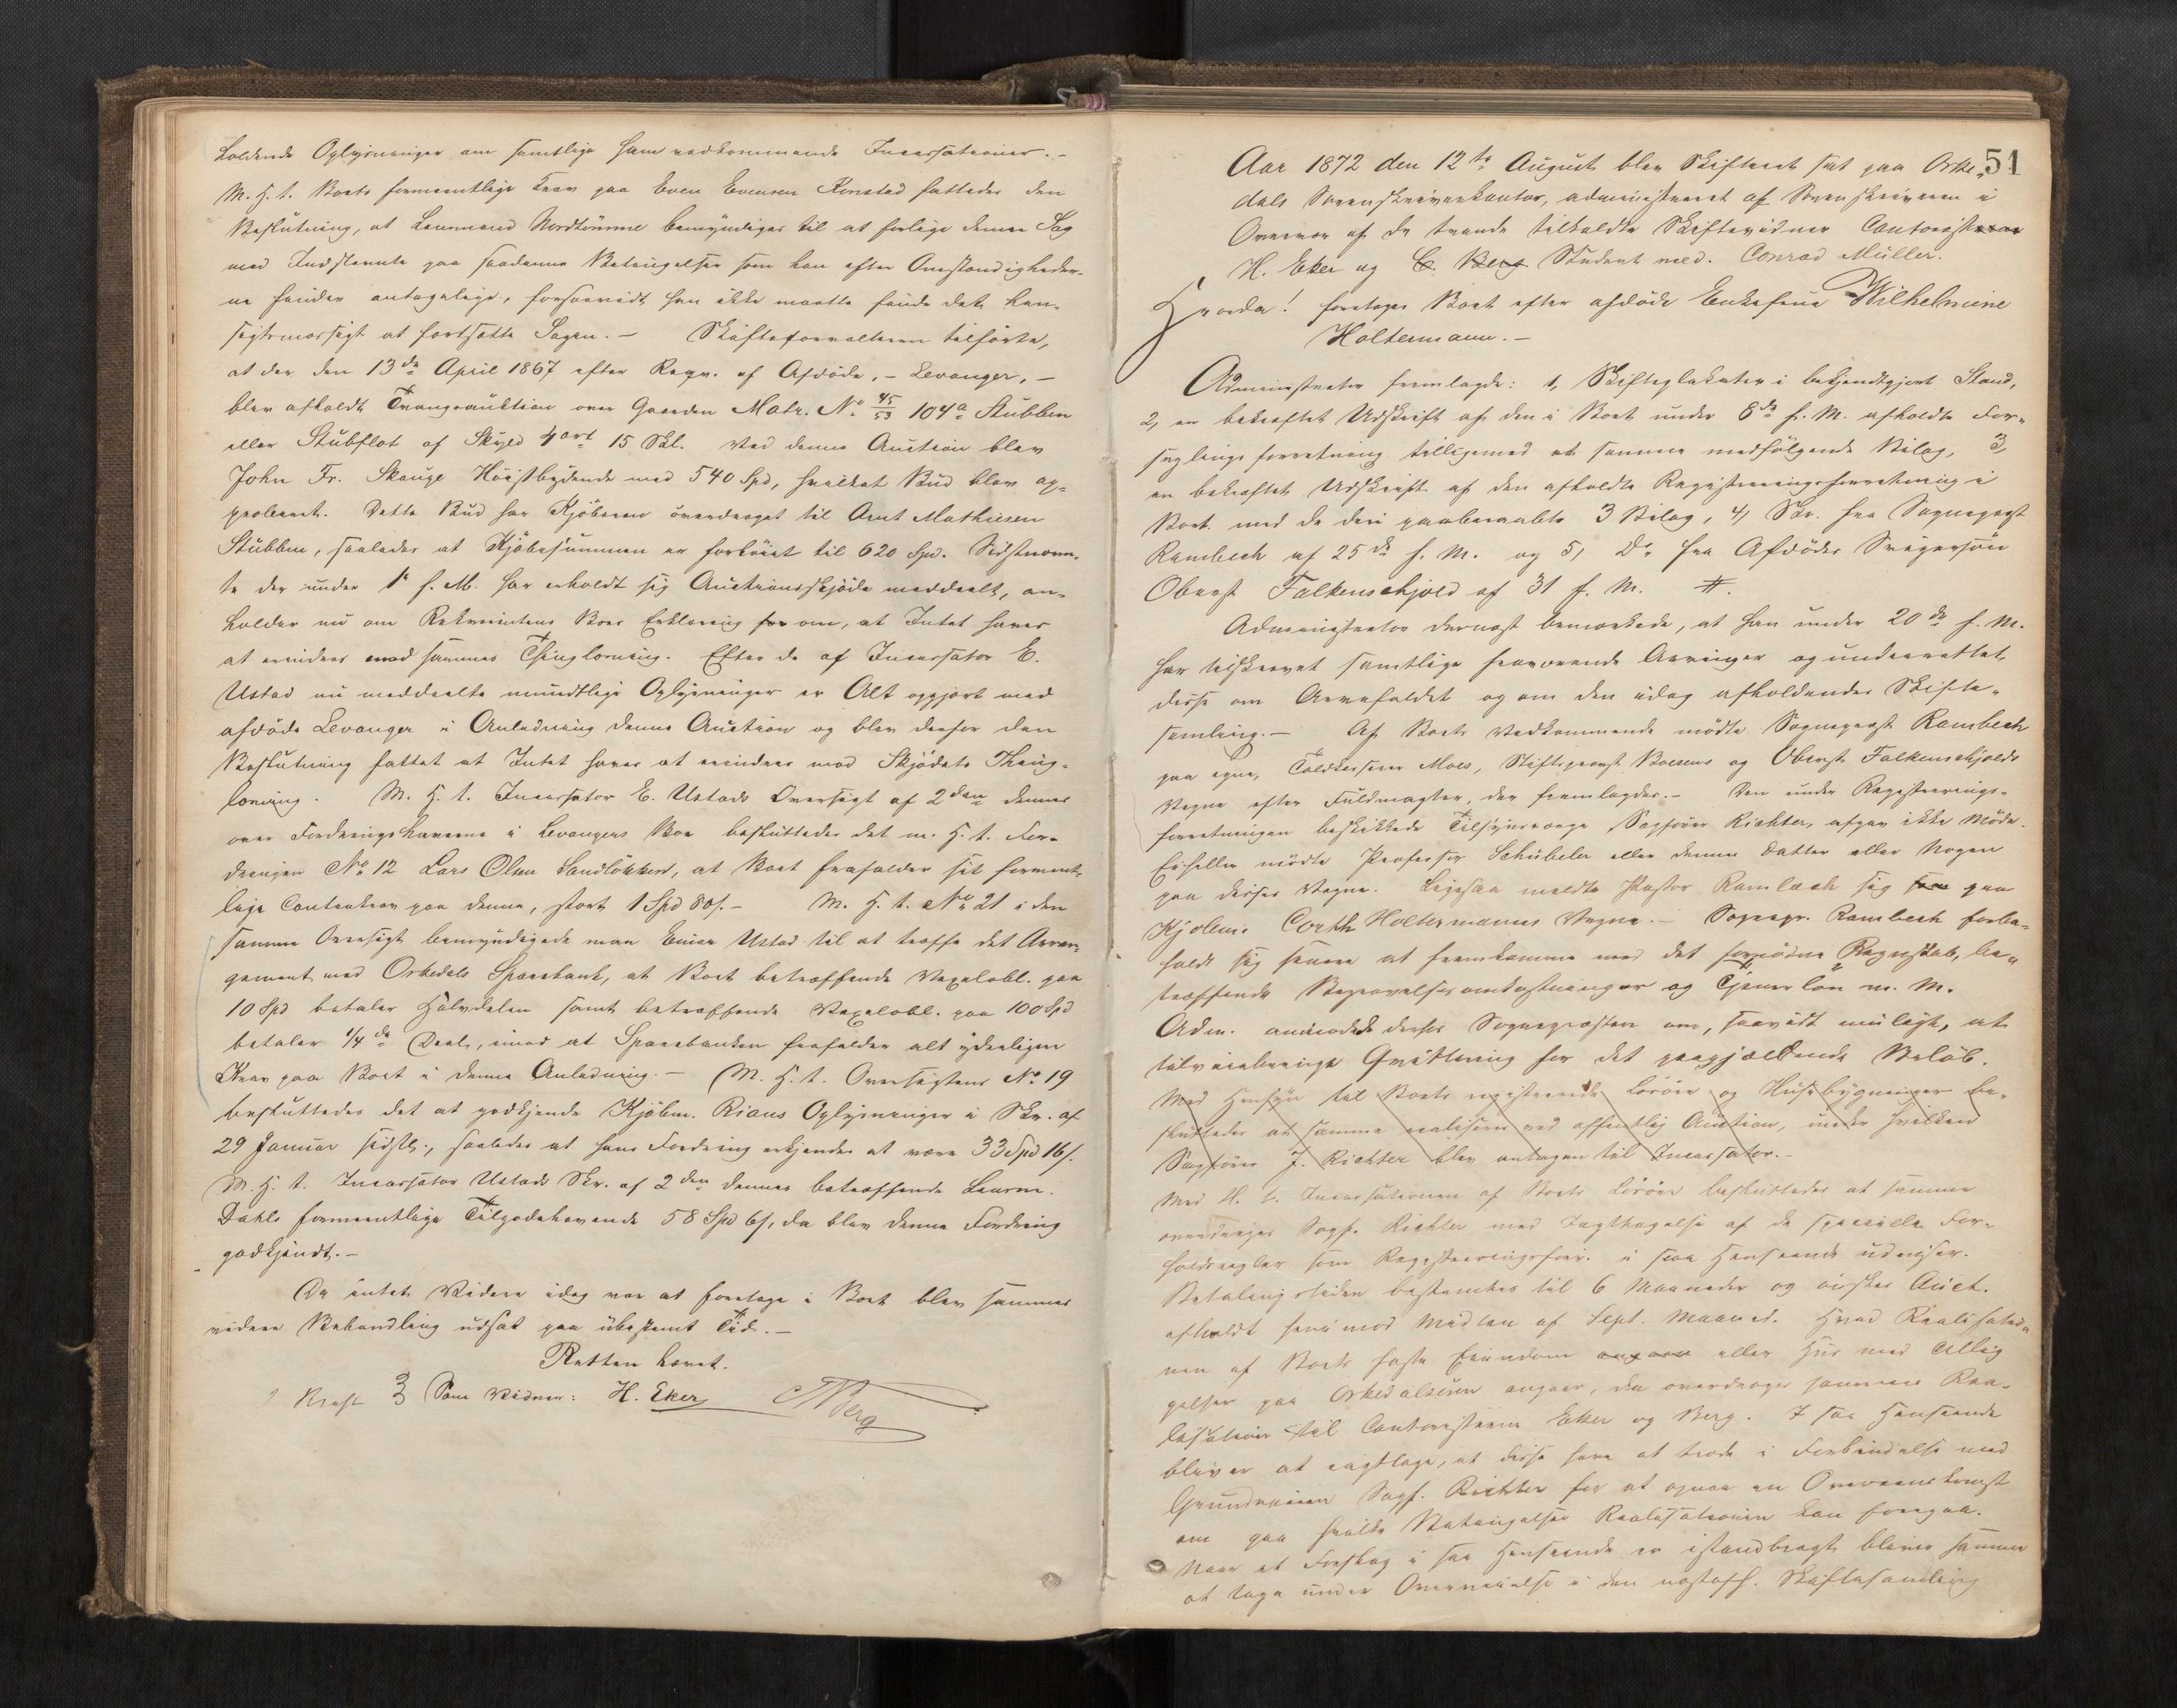 holdende Oplysninger om samtlige ham vedkommende Incassationer.-
M. H. t. Boets formeentlige Krav paa Even Evensen Konstad fattedes den
Beslutning, at Lensmand Nordtömme bemyndiges til at forlige denne Sag
med Indstevnte paa saadanne Betingelser som han efter Omstændigheder-
ne finder antagelige, forsaavidt han ikke maatte finde det hen-
sigtsmæssigt at fortsætte Sagen. - Skifteforvalteren tilförte,
at der den 13de April 1867 efter Reqv. af Afdöde, - Levanger, -
blev afholdt Tvangsauktion over Gaarden Matr. No 45/53 104a Stubben
eller Stubflot af Skyld 4 ort 15 Skl. Ved denne Auction blev
John Fr. Skauge Höistbydende med 540 Spd, hvilket Bud blev ap-
proberet. Dette Bud har Kjöberen överdraget til Arnt Mathiesen
Stubben, saaledes at Kjöbesummen er forhöiet til 620 Spd. Sidstnævn-
te der under 1ste f. M. har erholdt sig Auctionsskjöde meddeelt, an-
holder nu om Rekvirentens Boes Erklæring for om, at Intet haves
at erindres mod sammes Thinglæsning. Efter de af Incassator E.
Ustad nu meddeelte mundtlige Oplysninger er Alt opgjort med
afdöde Levanger i Anledning denne Auction og blev derfor den
Beslutning fattet at Intet haves at erindres mod Skjödets Thing-
læsning. M. H. t. Incassator E. Ustads Oversigt af 2den dennes
over Fordringshaverne i Levangers Boe besluttedes det m. H. t. For-
dringen No 12 Lars Olsen Sandlökken, at Boet frafalder sit forment-
lige Contrakrav paa denne, stort 1 Spd 80 s. - M. H. t. No 21 i den
samme Oversigt bemyndigede man Einar Ustad til at træffe det Arran-
gement med Orkedals Sparebank, at Boet betræffende Vexelobl. paa
10 Spd betaler Halvdelen samt betræffende Vexelobl. paa 100 Spd
betaler 1/4de Deel, imod at Sparebanken frafalder alt yderligere
Krav paa Boet i denne Anledning. - M. H. t. Oversigtens No 19
besluttedes det at godkjende Kjöbm. Rians Oplysninger i Skr. af
29 Januar sidstl., saaledes at hans Fordring erkjendes at være 33 Spd 16 s.
M. H. t. Incassator Ustads Skr. af 2den dennes betræffende Lensm.
Dahls formeentlige Tilgodehavende 58 Spd 6 s, da blev denne Fordring
godkjendt. -
Da intet Videre idag var at foretage i Boet blev sammes
videre Behandling udsat paa ubestemt Tid. -
Retten hævet.
Krast Som Vidner: H. Eker C. Berg
51
Aar 1872 den 12te August blev Skifteret sat paa Orke-
dals Sorenskriverkontor, administreret af Sorenskriveren i
Overvær af de tvende tilkaldte Skiftevidner Cantorist
H. Eker og C. Berg. Student med. Conrad Müller.
Hvorda! foretoges Boet efter afdöde Enkefrue Wilhelmine
Holtermann. -
Administrator fremlagde: 1, Skifteplakater i bekjendtgjort Stand,
2, en bekræftet Udskrift af den i Boet under 8de f. M. afholdte For-
seglings forretning tilligemed et samme medfölgende Bilag, 3,
en bekræftet Udskrift af den afholdte Registreringsforretning i
Boet med de deri paaberaabte 3 Bilag, 4, Skr. fra Sognepræst
Rambech af 25de f. M. og 5, Do fra Afdödes Svigersön
Oberst Falkenschjold af 31 f. M. #.
Administrator dernæst bemærkede, at han under 20de f. M.
har tilskrevet samtlige fraværende Arvinger og underrettet
disse om Arvefaldet og om den idag afholdendes Skifte-
samling. - Af Boets Vedkommende mödte Sognepræst Rambech
paa egne, Toldkasserer Moes, Stiftsprovst Boesens og Oberst Falkenschjolds
Vegne efter Fuldmagter, der fremlagdes. - Den under Registrerings-
forretningen beskikkede Tilsynsværge, Sagförer Richter, afgav ikke Möde.
Ei heller mödte Professor Schübeler eller dennes Datter eller Nogen
paa disses Vegne. Ligesaa meldte Pastor Rambech sig paa
Kjöbm. Corth Holtermanns Vegne. - Sognepr. Rambech forbe-
holdt sig senere at fremkomme med det fornödne Regnskab, be-
træffende Begravelsesomkostninger og Tjenerlön m. M.
Adm. anmodede derfor Sognepræsten om, saavidt muligt, at
tilveiebringe Qvittering for det paagjældende Belöb.
Med Hensyn til Boets registrerede Lösöre og Husebygninger be-
sluttedes at samme realiseres ved offentlig Auction, under hvilken
Sagförer J. Richter blev antagen til Incassator. -
Med H. t. Incassationen af Boets Lösöre besluttedes at samme
overdrages Sagf. Richter med Iagttagelse af de specielle For-
holdsregler som Registreringsforr. i saa Henseende udviser.
Betalingstiden bestemtes til 6 Maaneder og önskes Auct.
afholdt henimod Midten af Sept. Maaned. Hvad Realisatio-
nen af Boets faste Eiendom angaar eller Hus med Tillig-
gelser paa Orkedalsören angaar, da overdrages sammes Rea-
lisation til Cantoristerne Eker og Berg. I saa Henseende
bliver at iagttage, at disse have at træde i Forbindelse med
Grundeieren Sagf. Richter for at opnaa en Overeenskomst
om paa hvilke Betingelser Realisationen kan foregaa.
Naar et Forslag i saa Henseende er istandbragt bliver samme
at tage under Overveielse i den næste Skiftesamling